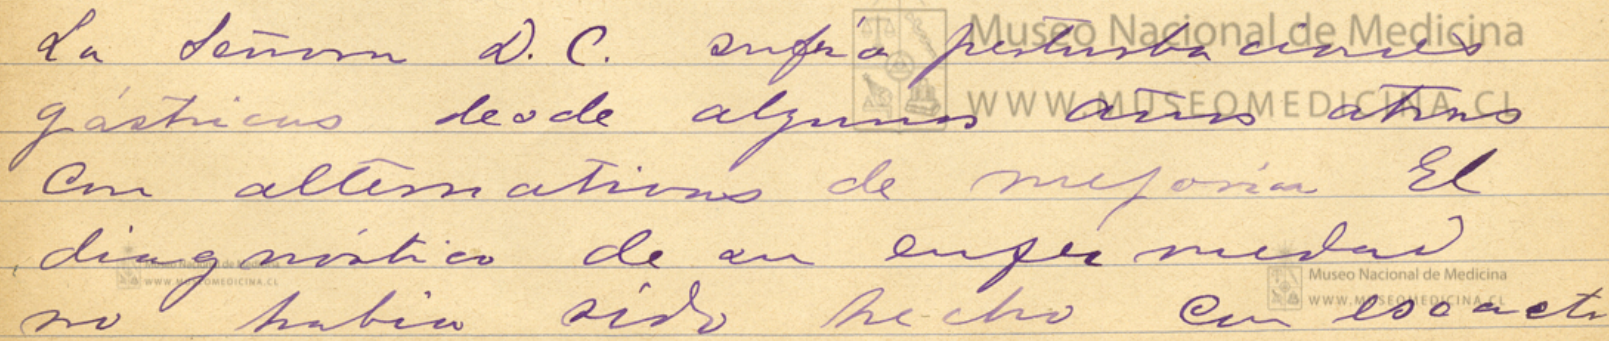 La Señora D. C. sufría perturbaciones
gástricas desde algunos años atras
con alternativas de mejoria El
diagnóstico de su enfermedad
no habia sido hecho con esacti
Museo Nacional de Medicina
WWW.MUSEOMEDICINA.CL
Museo Nacional de Medicina
WWW.MUSEOMEDICINA.CL
Museo Nacional de Medicina
WWW.MUSEOMEDICINA.CL